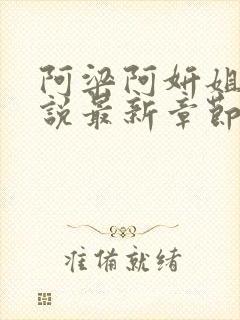 阿梁阿妍姐
說最新章節
准備就绪